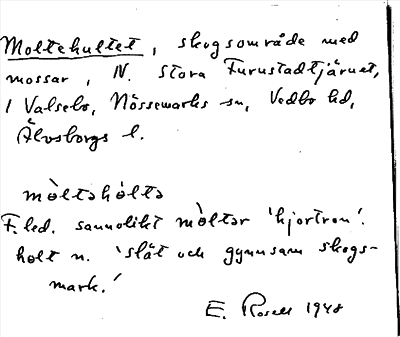 Moltehultet, skogsområde med
mossar, N. Stora Furustadtjärnet,
/ Valsebo, Nössemarks sn, Vedbo hd,
Älvsborgs l.
mòltəhòltə
F.led. sannolikt mòltər 'hjortron'.
holt n. 'slät och gynnsam skogs-
mark.'
E. Rosell 1948